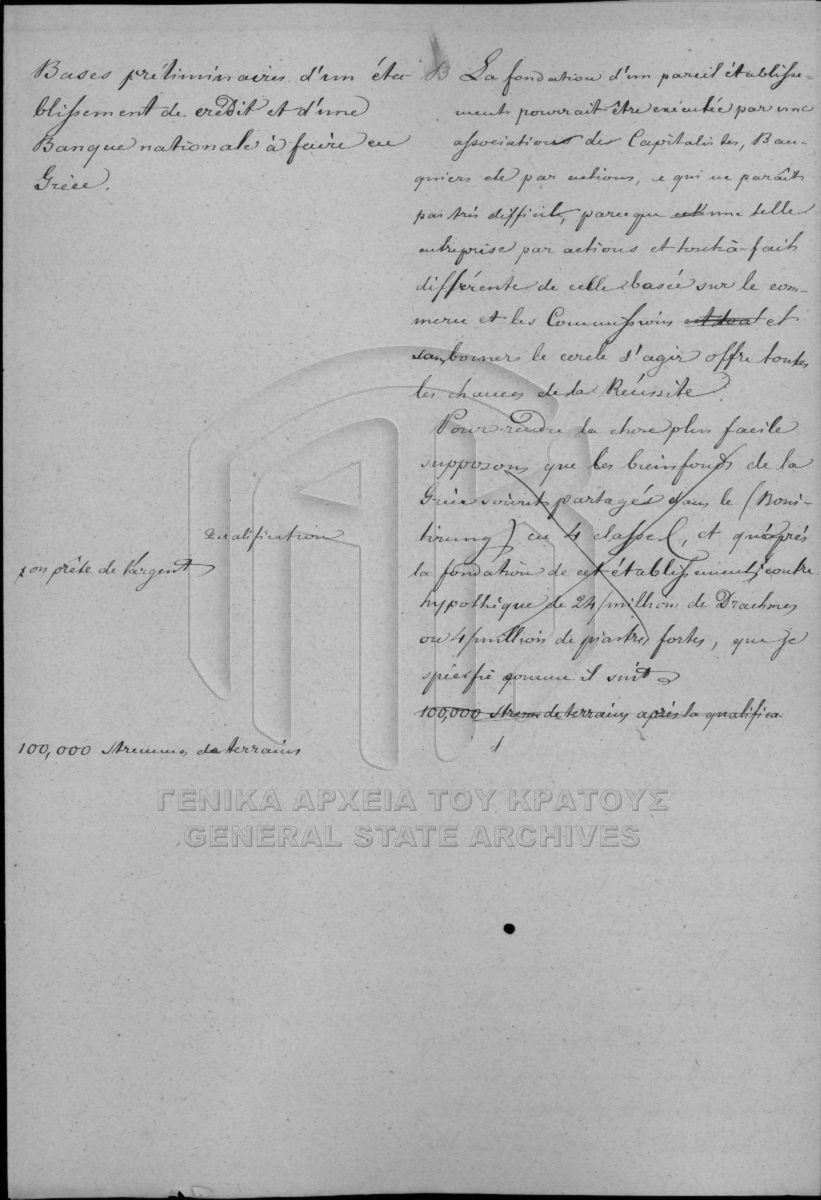 Bases préliminaires d'un éta-
blissement de crédit et d'une
Banque nationale à faire en
Grèce.
B La fondation d'un pareil établisse-
ments pourrait être exécutée par une
associations des Capitalistes, Ban-
quiers etc par actions, e qui ne paraît
pas très difficile, parceque une telle
entreprise par actions et toutà-fait
différente de celle basée sur le com-
merce et les Commissions et
sans borner le cercle d'agir offre toutes
les chances de la Réussite.
Pour rendre la chose plus facile
supposons que les bienfonds de la
Grèce soient partagés dans le (Boni-
tirung) en 4 classes, et qu'après
la fondation de cet établissement, contre
hypothèque de 24/million de Drachmes
ou 4/million de piastres fortes, que je
spécifie comme il suit
100,000 strem de terrains après la qualifica
Qualification
on prête de l'argent
100,000 stremmes de terrains
ΓΕΝΙΚΑ ΑΡΧΕΙΑ ΤΟΥ ΚΡΑΤΟΥΣ
GENERAL STATE ARCHIVES